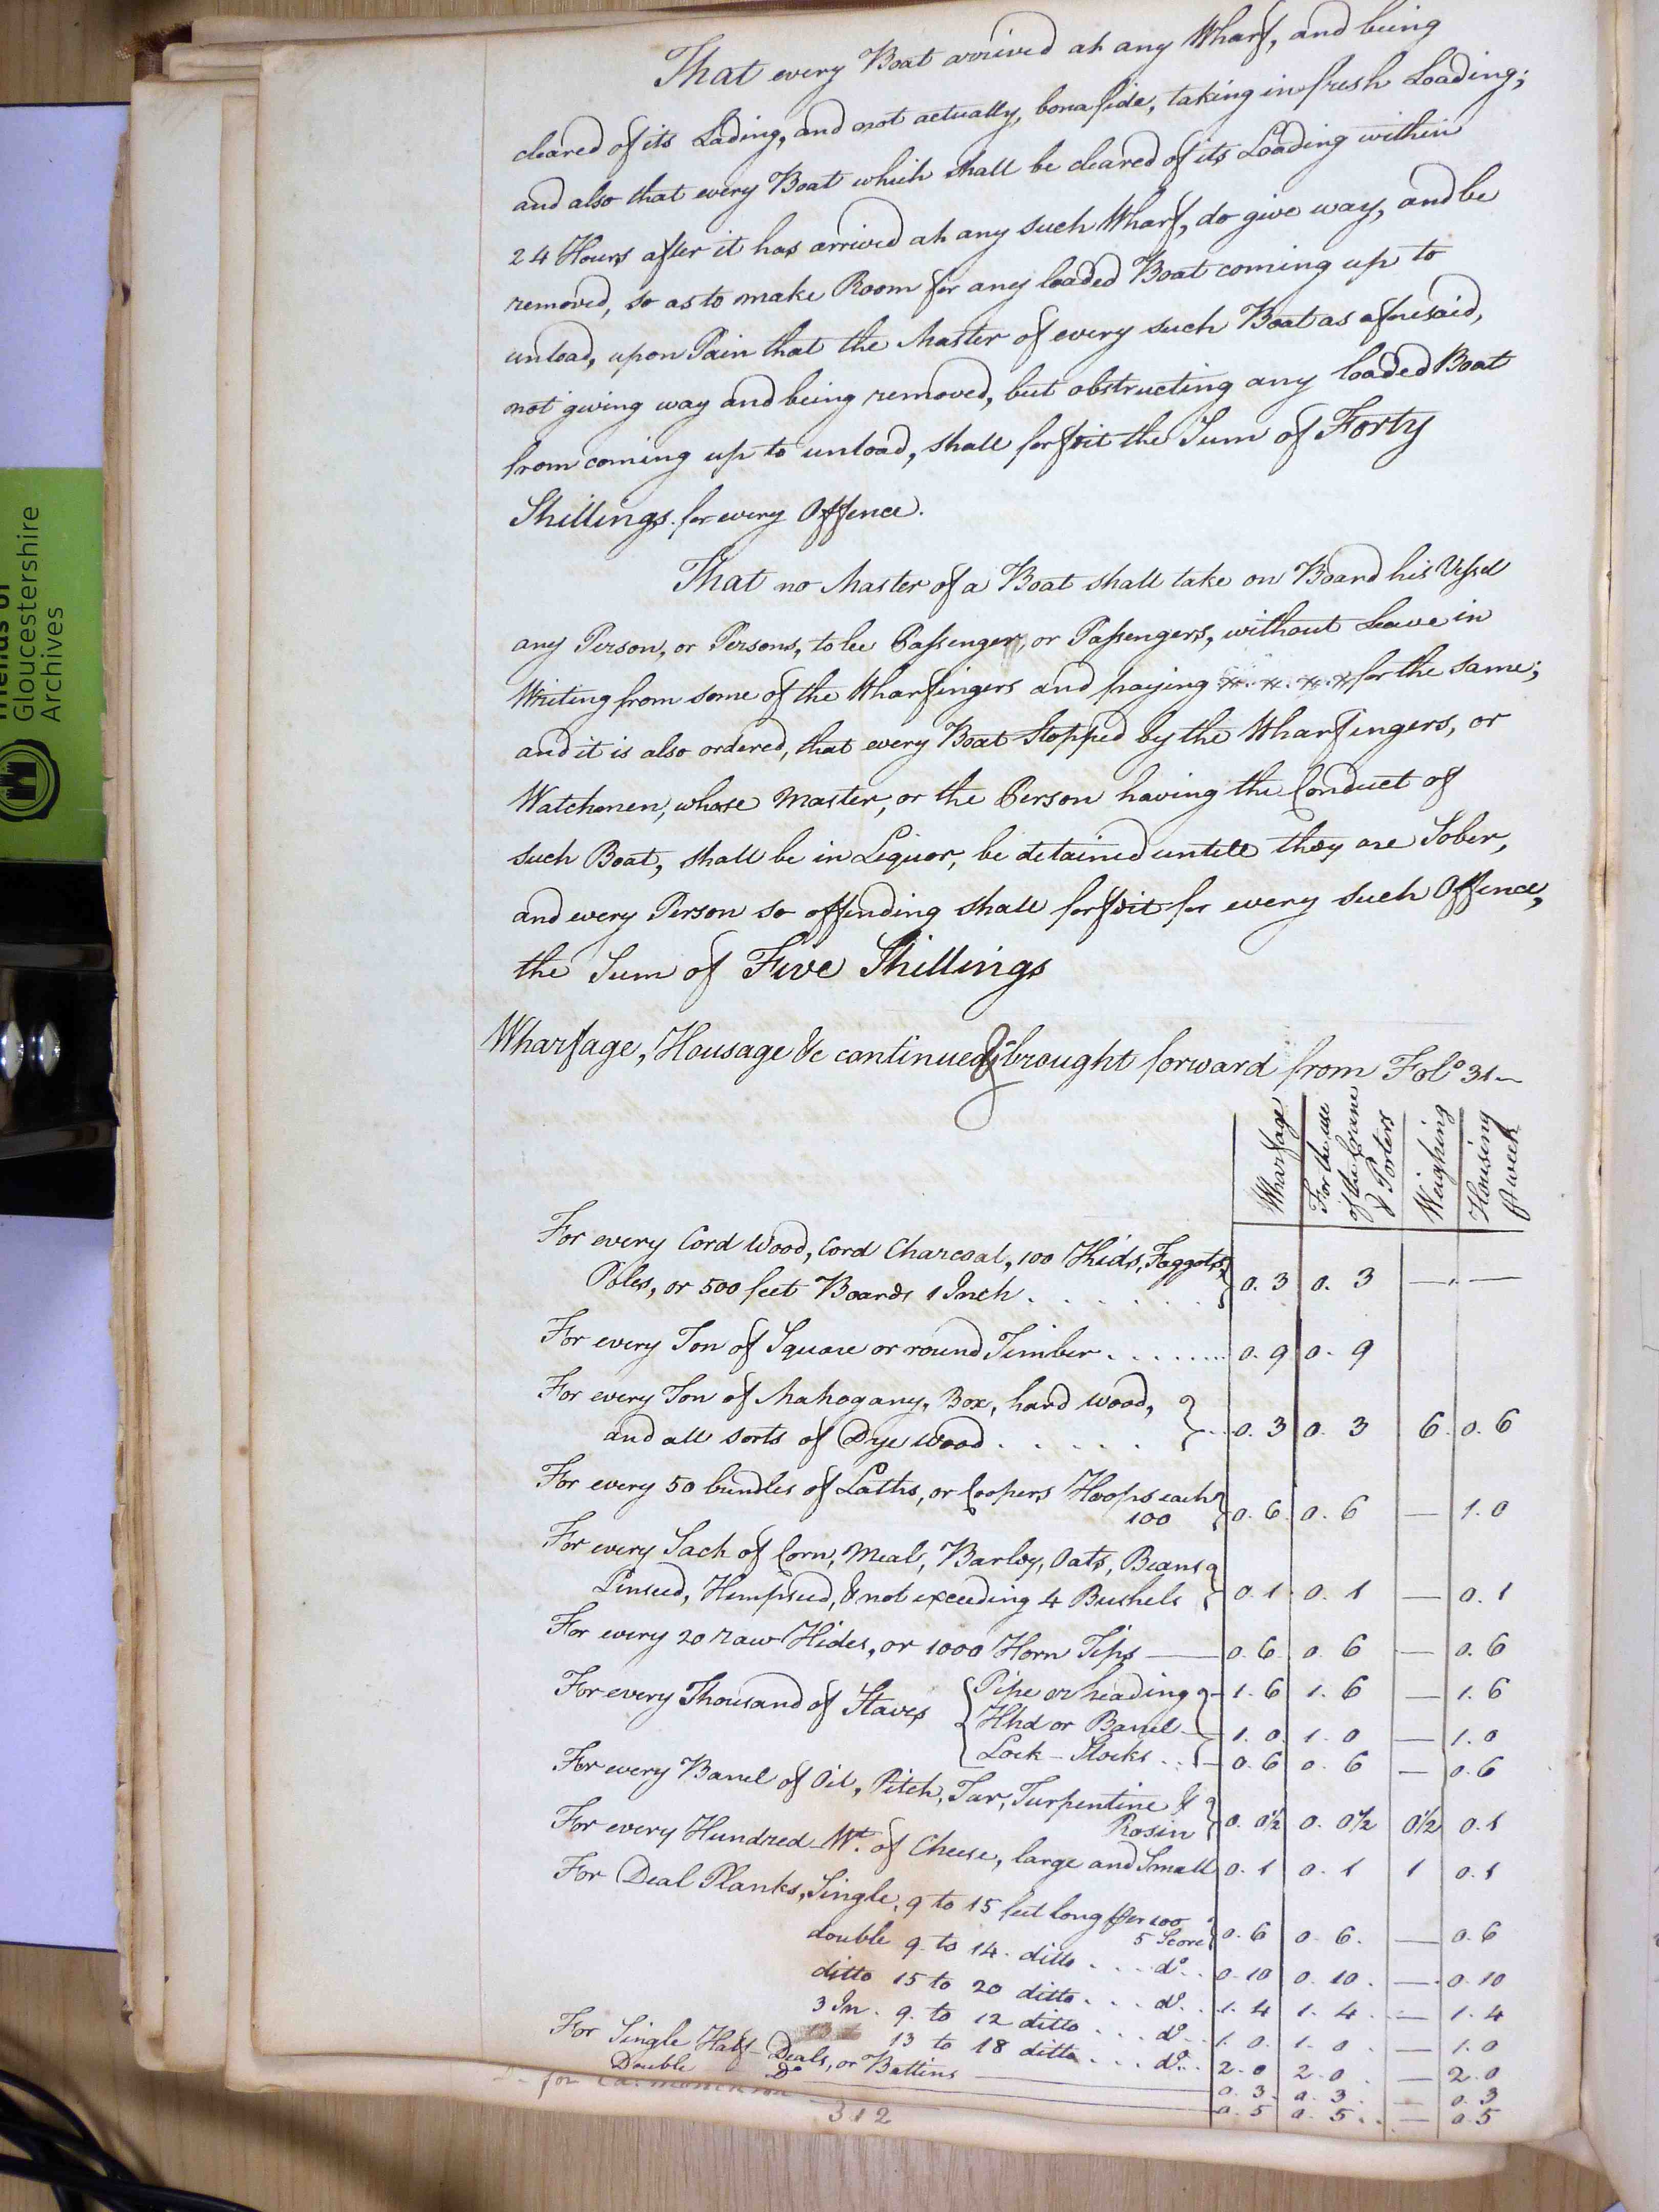 That every Boat arrived at any Wharf, and being
cleared of its Lading, and not actually, bona fide, taking in fresh Loading;
and also that every Boat which shall be cleared of its Loading within
24 Hours after it has arrived at any such Wharf, do give way, and be
removed, so as to make Room for any loaded Boat coming up to
unload, upon Pain that the Master of every such Boat as aforesaid,
not giving way and being removed, but obstructing any loaded Boat
from coming up to unload, shall forfeit the Sum of Forty
Shillings for every Offence.
That no Master of a Boat shall take on Board his Vessel
any Person, or Persons, to be Passenger, or Passengers, without Leave in
Writing from some of the Wharfingers and paying for the same;
and it is also ordered, that every Boat Stopped by the Wharfingers, or
Watchmen, whose Master, or the Person having the Conduct of
such Boat, shall be in Liquor, be detained untill they are Sober,
and every Person so offending shall forfeit for every such Offence,
the Sum of Five Shillings
Wharfage, Housage &c continued & brought forward from Folo 31
Wharfage
For the use of the Crane & Porters
Weighing
Housing ⅌ week
For every Cord Wood, Cord Charcoal, 100 Kids, Faggots,
Poles, or 500 feet Boards 1 Inch . . . . . . 0. 3 0. 3 — —
For every Ton of Square or round Timber . . . . . . . . 0. 9 0. 9
For every Ton of Mahogany, Box, hard Wood,
and all sorts of Dye Wood . . . . . 0. 3 0. 3 6 0. 6
For every 50 bundles of Laths, or Coopers Hoops each
100 0. 6 0. 6 — 1. 0
For every Sack of Corn, Meal, Barley, Oats, Beans
Linseed, Hempseed, & not exceeding 4 Bushels 0. 1 0. 1 — 0. 1
For every 20 raw Hides, or 1000 Horn Tips — 0. 6 0. 6 — 0. 6
For every Thousand of Staves Pipe or heading 1. 6 1. 6 — 1. 6
Hhd or Barrel 1. 0 1. 0 — 1. 0
Lock-Stocks . . 0. 6 0. 6 — 0. 6
For every Barrel of Oil, Pitch, Tar, Turpentine &
Rosin 0. 0½ 0. 0½ 0½ 0. 1
For every Hundred Wt. of Cheese, large and Small 0. 1 0. 1 1 0. 1
For Deal Planks, Single, 9 to 15 feet long ⅌er 100
5 Score 0. 6 0. 6. — 0. 6
double 9. to 14. ditto . . . . do. . 0. 10 0. 10 . — 0. 10
ditto 15 to 20 ditto . . . do. . 1. 4 1. 4 . — 1. 4
3 In. 9. to 12 ditto . . . do. . 1. 0. 1. 0 . — 1. 0
13 to 18 ditto . . . do. . . 2. 0 2. 0 . — 2. 0
For Single Half-Deals, or Battins — 0. 3. 0. 3 . — 0. 3
Double Do — 0. 5 0. 5 . . — 0. 5
312
Friends of
Gloucestershire
Archives